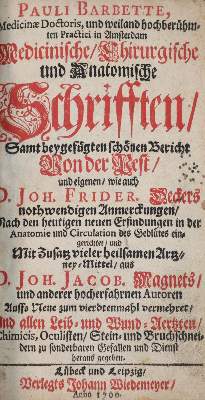 PAULI BARBETTE,
Medicinæ Doctoris, und weiland hochberühm-
ten Practici in Amsterdam
Medicinische/ Chirurgische
und Anatomische
Schrifften/
Samt beygefügten schönen Bericht
Von der Pest/
und eignem/ wie auch
D. JOH. FRIDER. Deckers
nothwendigen Anmerckungen/
Nach den heutigen neuen Erfindungen in der
Anatomie und Circulation des Geblütes ein-
gerichtet/ und
Mit Zusatz vieler heilsamen Artz-
ney-Mittel/ aus
D. JOH. JACOB. Magnets/
und anderer hocherfahrnen Autoren
Auffs Neue zum vierdtenmahl vermehret/
Und allen Leib- und Wund-Aertzten/
Chimicis, Oculisten/ Stein- und Bruchschnei-
dern zu sonderbaren Gefallen und Dienst
heraus gegeben.
Lübeck und Leipzig/
Verlegts Johann Wiedemeyer/
Anno 1700.